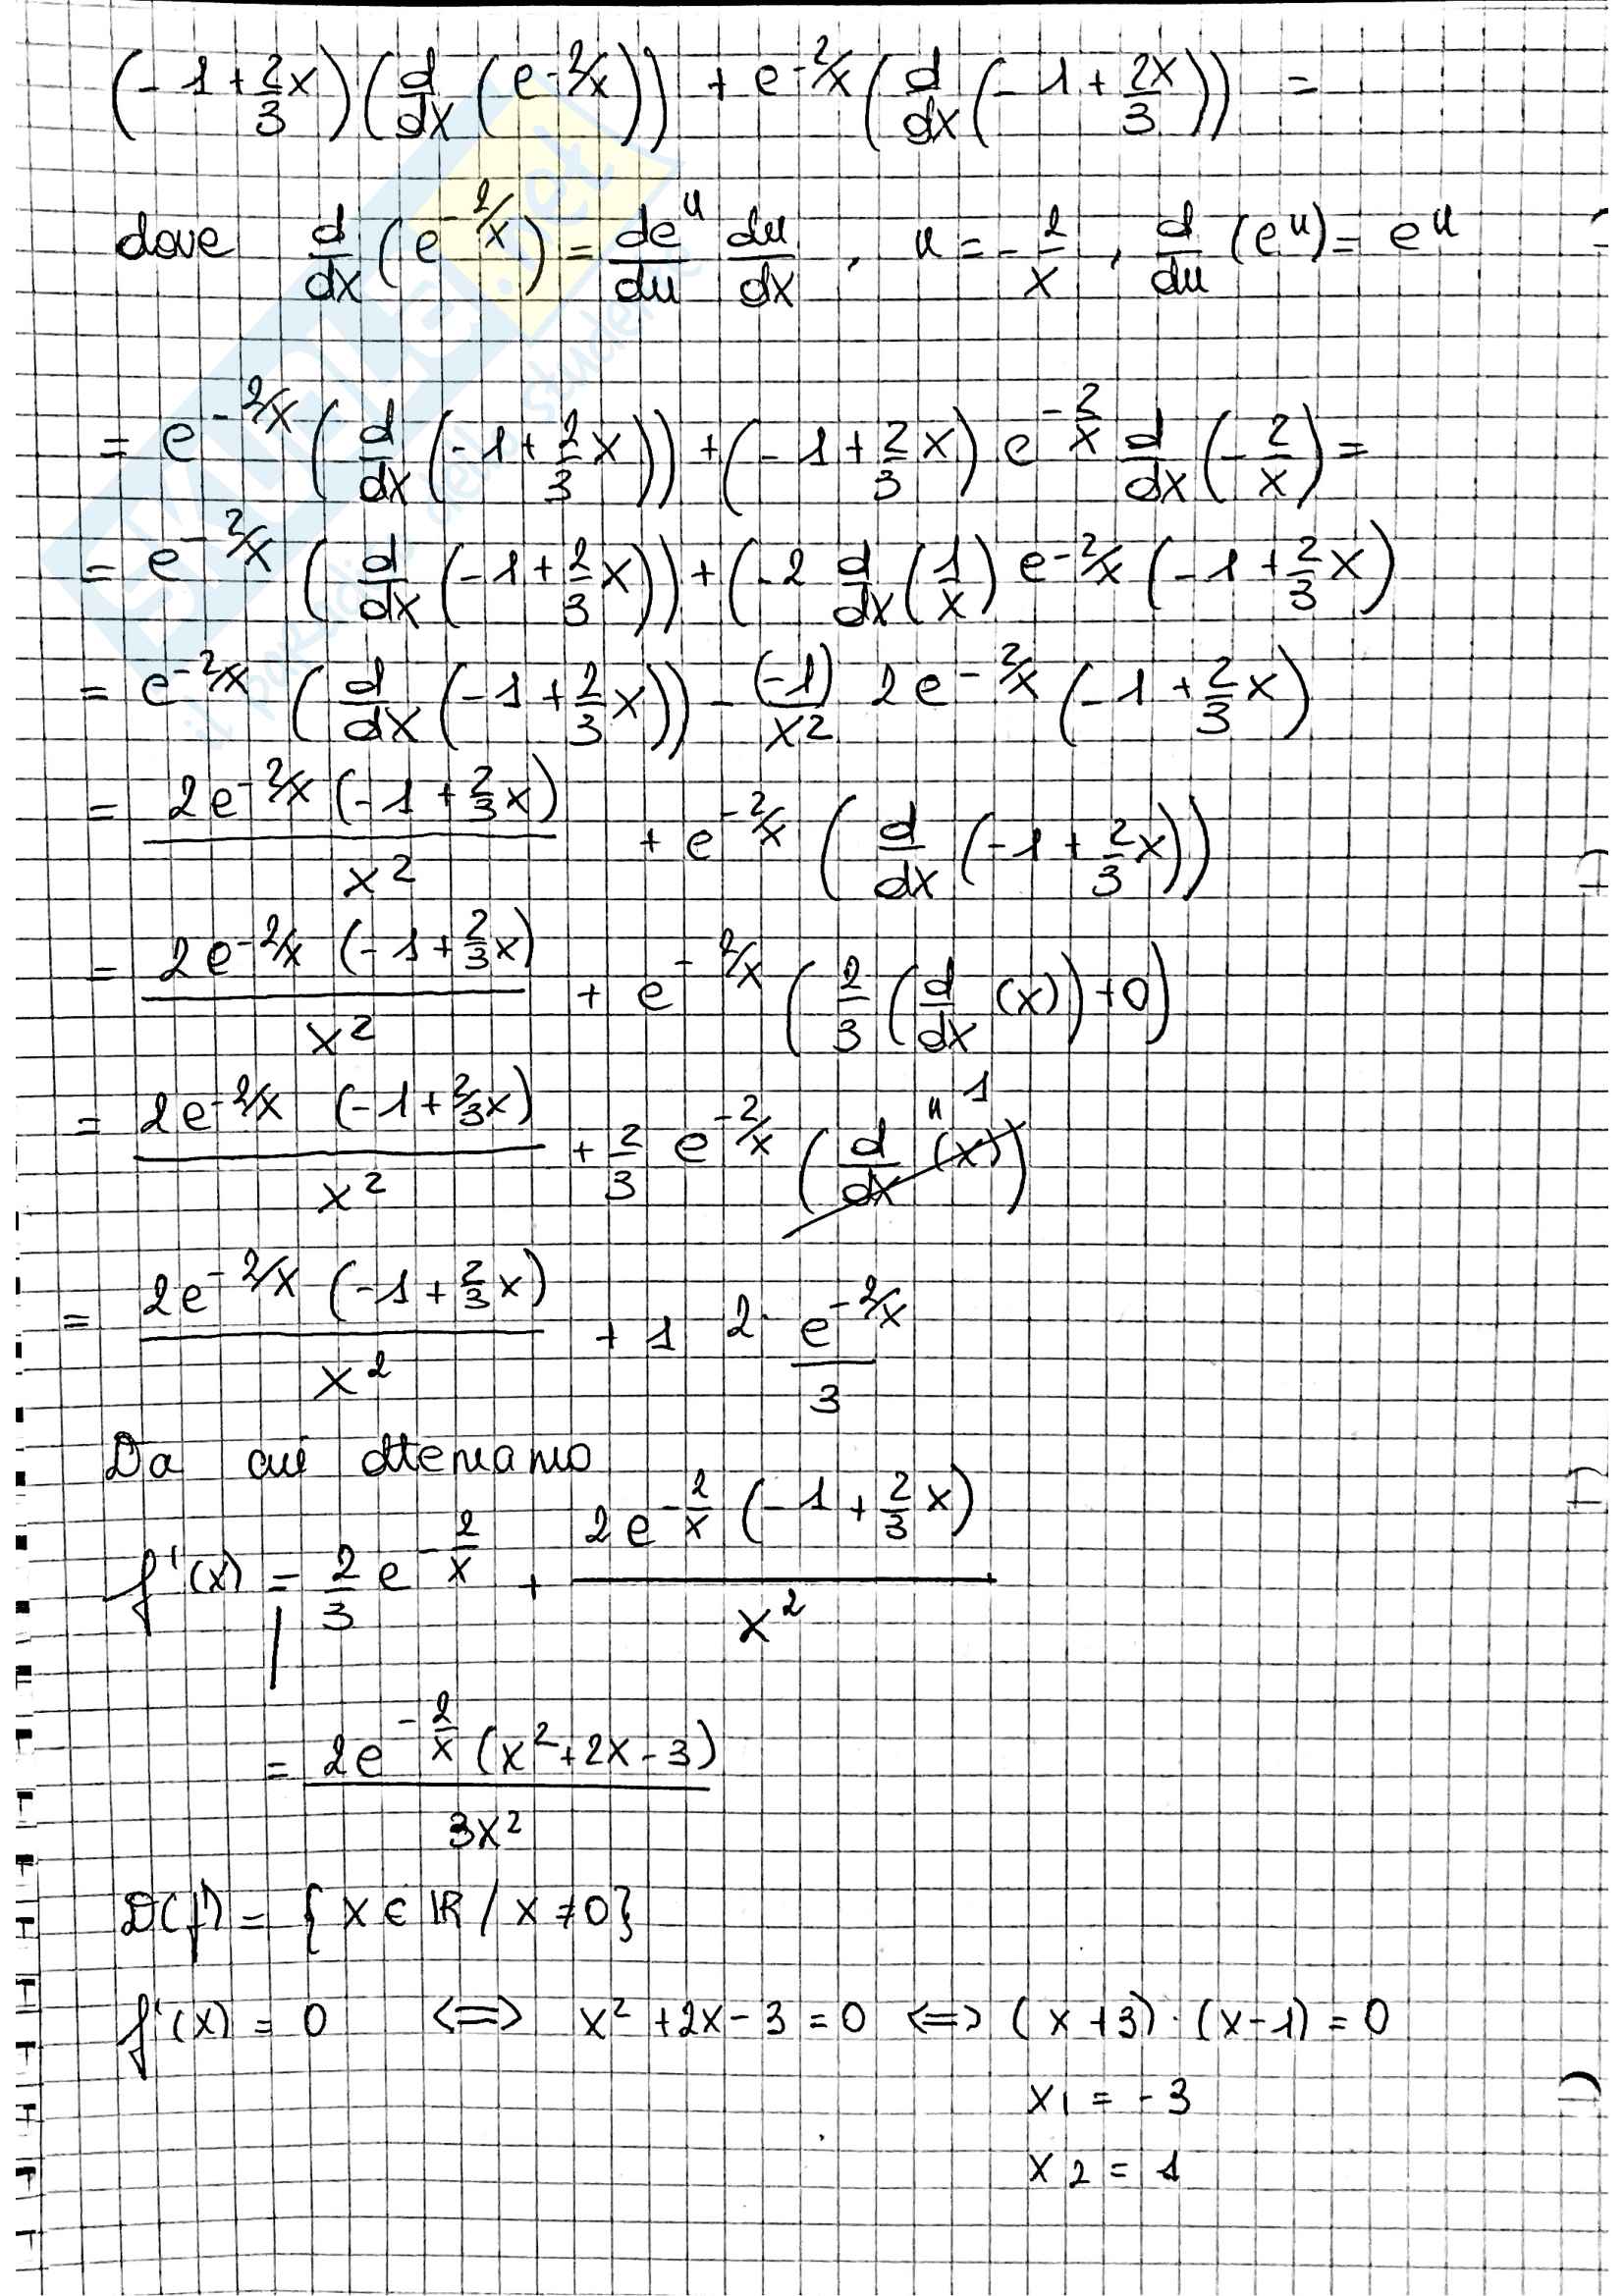 (-1+2/3x)(d/dx(e-2/x)) + e-2/x(d/dx(-1+2x/3)) =
dove d/dx(e^-2/x) = de^u/du du/dx , u=-2/x , d/du(e^u)= e^u
= e^-2/x(d/dx(-1+2/3x)) + (-1+2/3x) e^-2/x d/dx(-2/x)=
= e^-2/x (d/dx(-1+2/3x))+(-2 d/dx(1/x) e-2/x (-1+2/3x)
= e^-2/x (d/dx(-1+2/3x)) - (-1)/x² 2e^-2/x (-1+2/3x)
= 2e^-2/x (-1+2/3x)/x² + e^-2/x (d/dx(-1+2/3x))
= 2e^-2/x (-1+2/3x)/x² + e^-2/x (2/3(d/dx(x))+0)
= 2e^-2/x (-1+2/3x)/x² + 2/3 e^-2/x (d/dx(x)) " 1
= 2e^-2/x (-1+2/3x)/x² + 1 2· e^-2/x/3
Da cui otteniamo
f'(x) = 2/3 e^-2/x + 2e^-2/x (-1+2/3x)/x²
= 2e^-2/x (x²+2x-3)/3x²
D(f') = { x ∈ ℝ / x ≠0}
f'(x) = 0 <=> x²+2x-3=0 <=> (x+3)·(x-1)=0
x1 = -3
x2 = 1
skuola.net
il paradiso dello studente